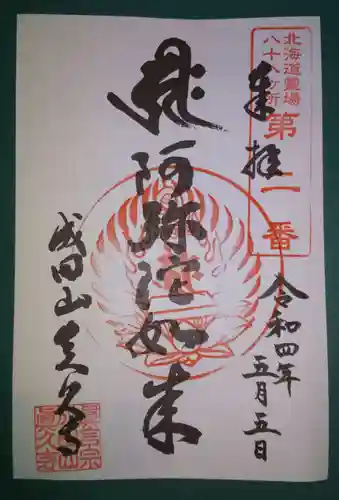 北海道霊場
八十八ヶ所
第二番
奉拝
令和四年
五月五日
阿弥陀如来
成田山真久寺